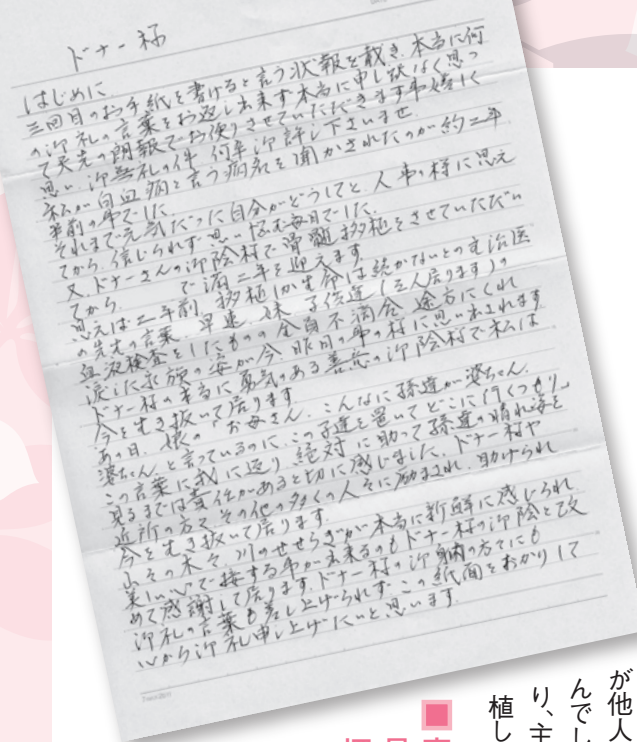 ドナー様
はじめに
三回目のお手紙を書けると言う状報を戴き、本当に何
の御礼の言葉をお返し出来ず本当に申し訳なく思っ
て矢先の朗報でお便りさせていただきます事嬉しく
思い、御無礼の件、何卒御許し下さいませ。
私が白血病と言う病名を聞かされたのが約二年
半前の事でした。
それまで元気だった自分がどうしてと、人事の様に思え
てから、信じられず思い悩む毎日でした。
又、ドナーさんの御陰様で骨髄移植をさせていただい
てから、 で満二年を迎えます。
思えば二年前、移植しか生命は続かないとの主治医
の先生の言葉、早速、妹、子供達(三人居ります)の
血液検査をしたものの全員不適合、途方にくれ
涙した家族の姿が今、昨日の事の様に思い出されます。
ドナー様の本当に勇気のある善意の御陰様で私は
今を生き抜いて居ります。
あの日、娘の「お母さん、こんなに孫達が婆ちゃん、
婆ちゃんと言っているのに、この子達を置いてどこに行くつもり」
この言葉に我に返り、絶対に助って孫達の晴れ姿を
見るまでは責任があると切に感じました。ドナー様や
近所の方々、その他の多くの人々に励まされ、助けられ
今を生き抜いて居ります。
山その木々、川のせせらぎが本当に新鮮に感じられ
美しい心で接する事が出来るのもドナー様の御陰と改
めて感謝して居ります。ドナー様の御の方々にも
御礼の言葉も差し上げられず、この紙面をおかりして
心から御礼申し上げたいと思います。
が他人
んでし
り、主
植し